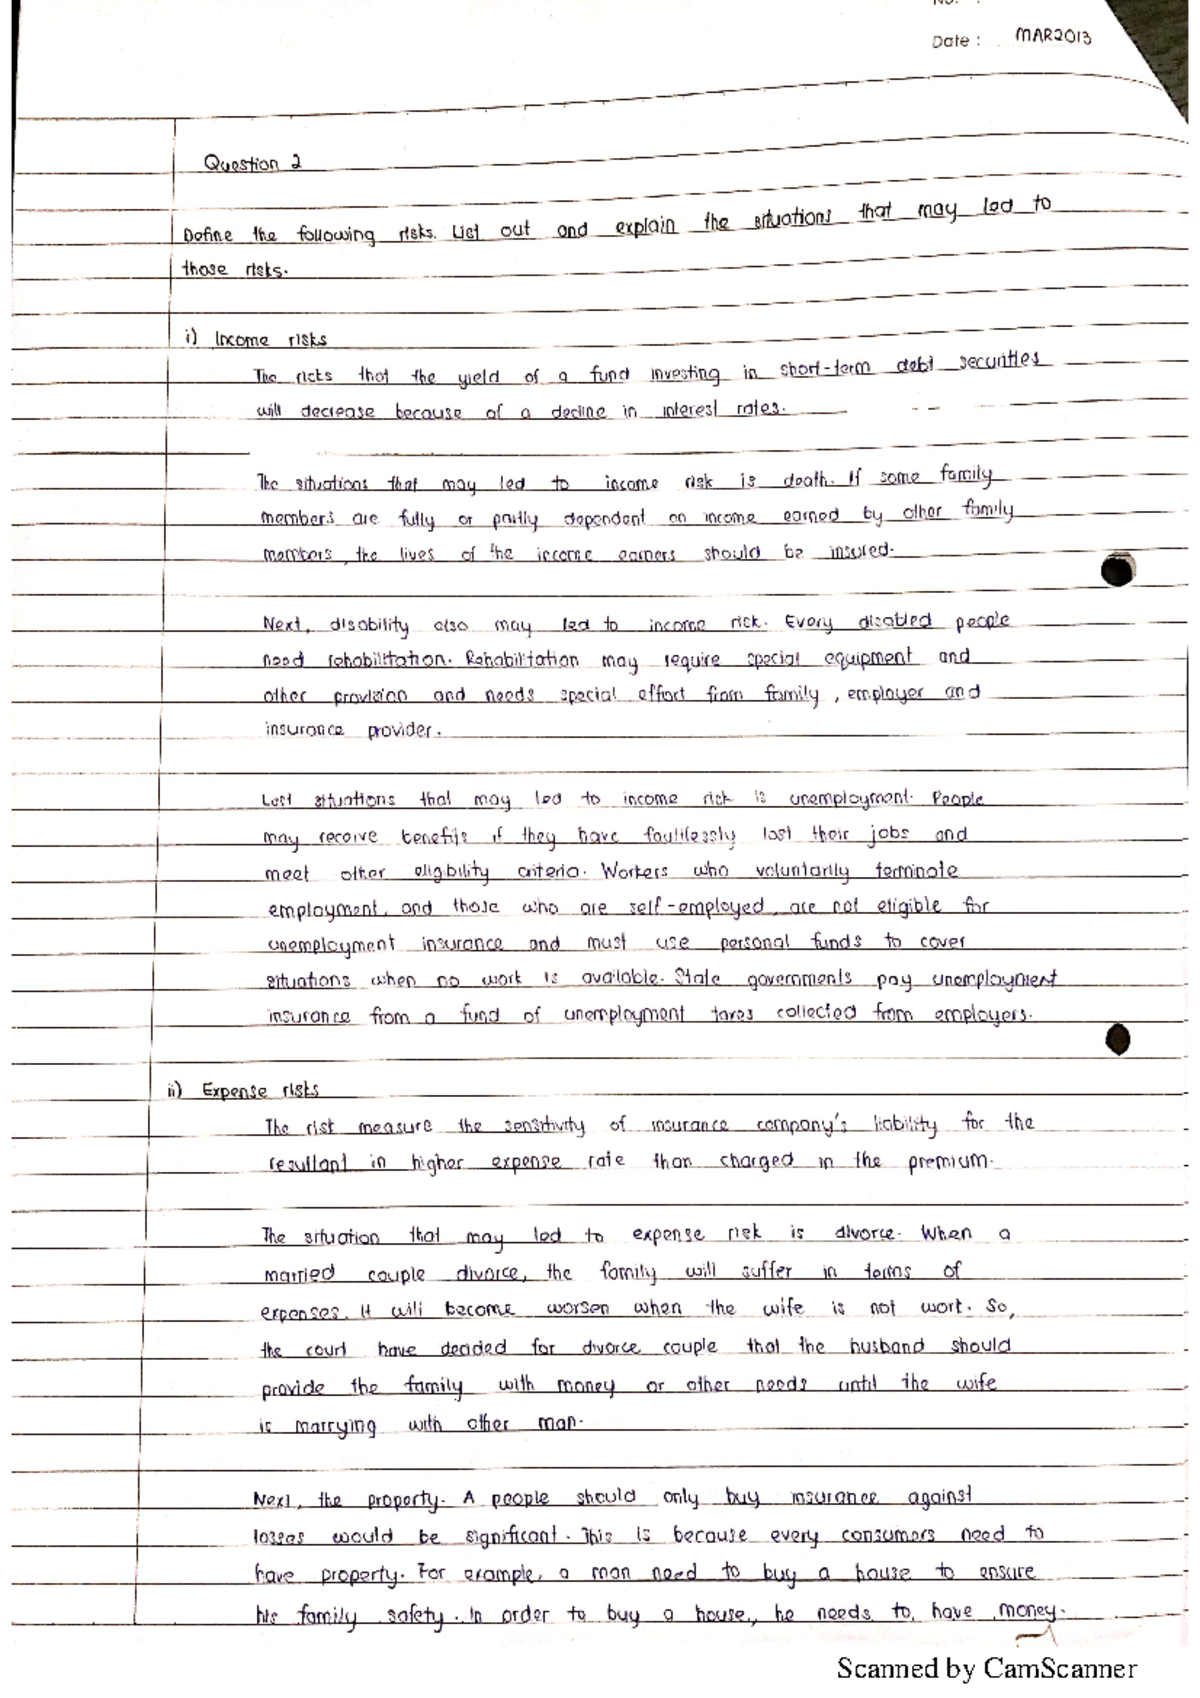 No. :
Date : MAR2013
Question 2
Define the following risks. List out and explain the situations that may led to
those risks.
i) Income risks
The risks that the yield of a fund investing in short-term debt securities
will decrease because of a decline in interest rates.
The situations that may led to income risk is death. If some family
members are fully or partly dependent on income earned by other family
members, the lives of the income earners should be insured.
Next, disability also may led to income risk. Every disabled people
need rehabilitation. Rehabilitation may require special equipment and
other provision and needs special effort from family, employer and
insurance provider.
Last situations that may led to income risk is unemployment. People
may receive benefits if they have faultlessly lost their jobs and
meet other eligibility criteria. Workers who voluntarily terminate
employment, and those who are self-employed, are not eligible for
unemployment insurance and must use personal funds to cover
situations when no work is available. State governments pay unemployment
insurance from a fund of unemployment taxes collected from employers.
ii) Expense risks
The risk measure the sensitivity of insurance company's liability for the
resultant in higher expense rate than charged in the premium.
The situation that may led to expense risk is divorce. When a
married couple divorce, the family will suffer in terms of
expenses. It will become worsen when the wife is not work. So,
the court have decided for divorce couple that the husband should
provide the family with money or other needs until the wife
is marrying with other man.
Next, the property. A people should only buy insurance against
losses would be significant. This is because every consumers need to
have property. For example, a man need to buy a house to ensure
his family safety. In order to buy a house, he needs to have money.
Scanned by CamScanner